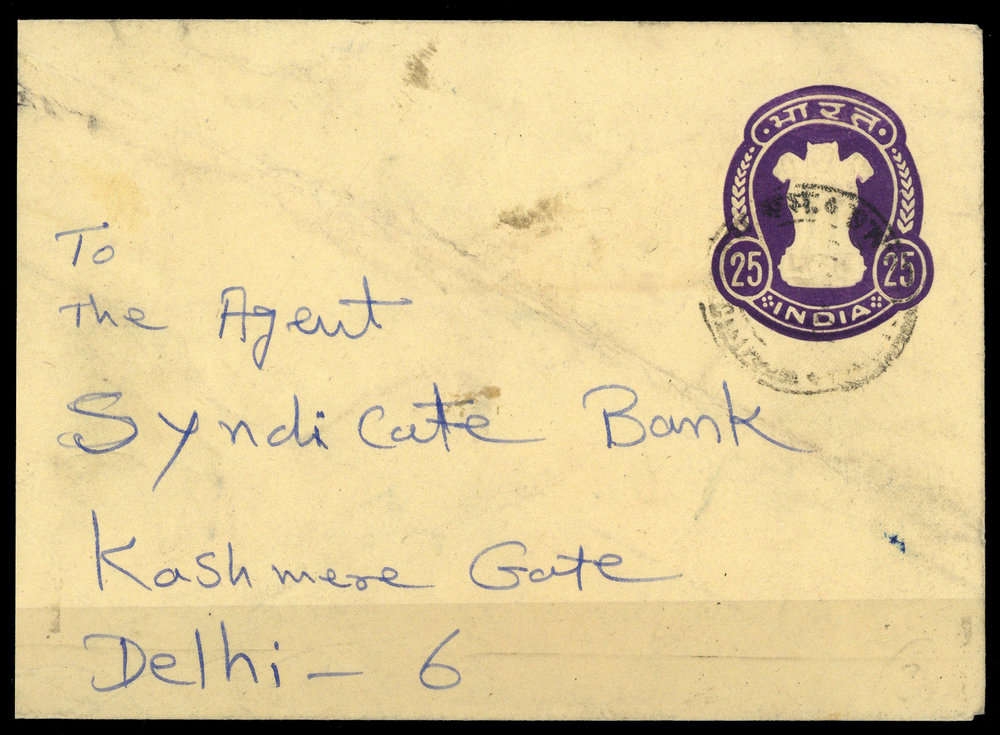 भारत
25 25
INDIA
To
The Agent
Syndicate Bank
Kashmere Gate
Delhi - 6